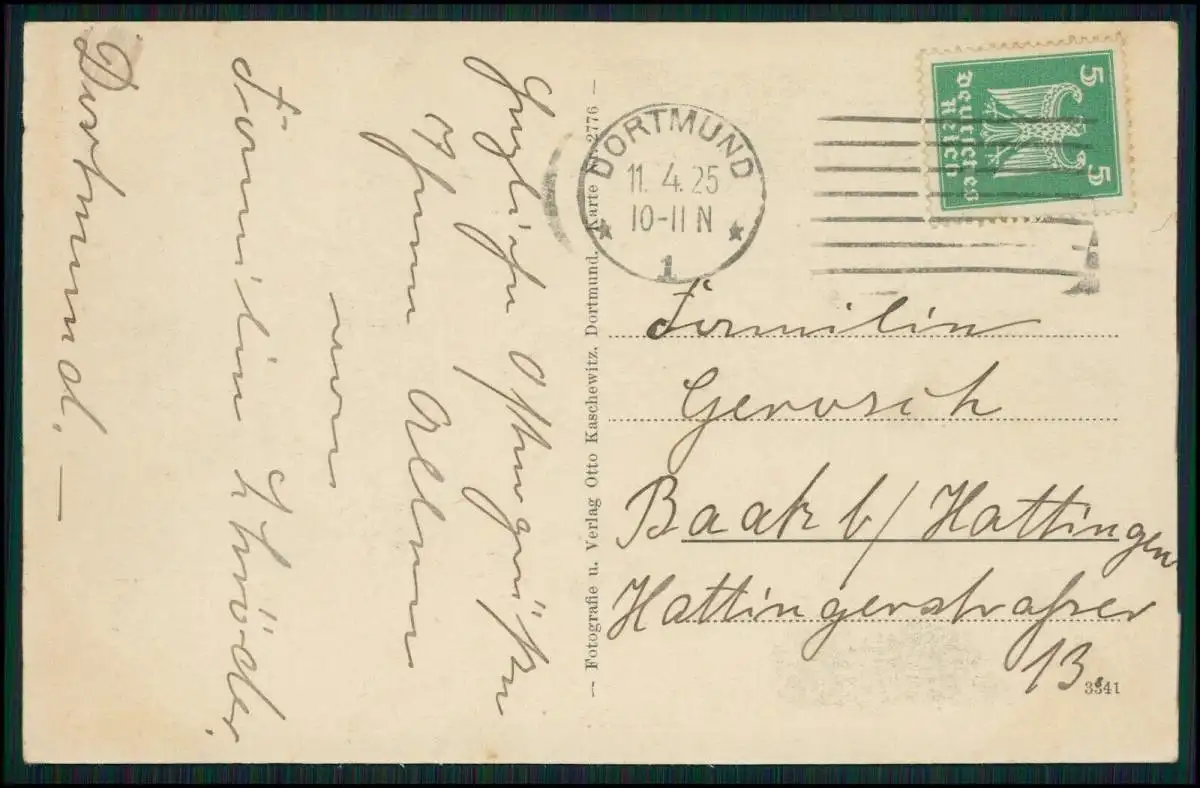 Herzliche Ostergrüße
Ihnen Allen
von
Familie Schröder,
Dortmund. —
— Fotografie u. Verlag Otto Kaschewitz, Dortmund. Karte Nr. 2776 —
DORTMUND
11. 4. 25
10-11 N
1
5 5
Deutsches
Reich
Familie
Gerusch
Baak b/ Hattingen
Hattingerstraße
13.
3341